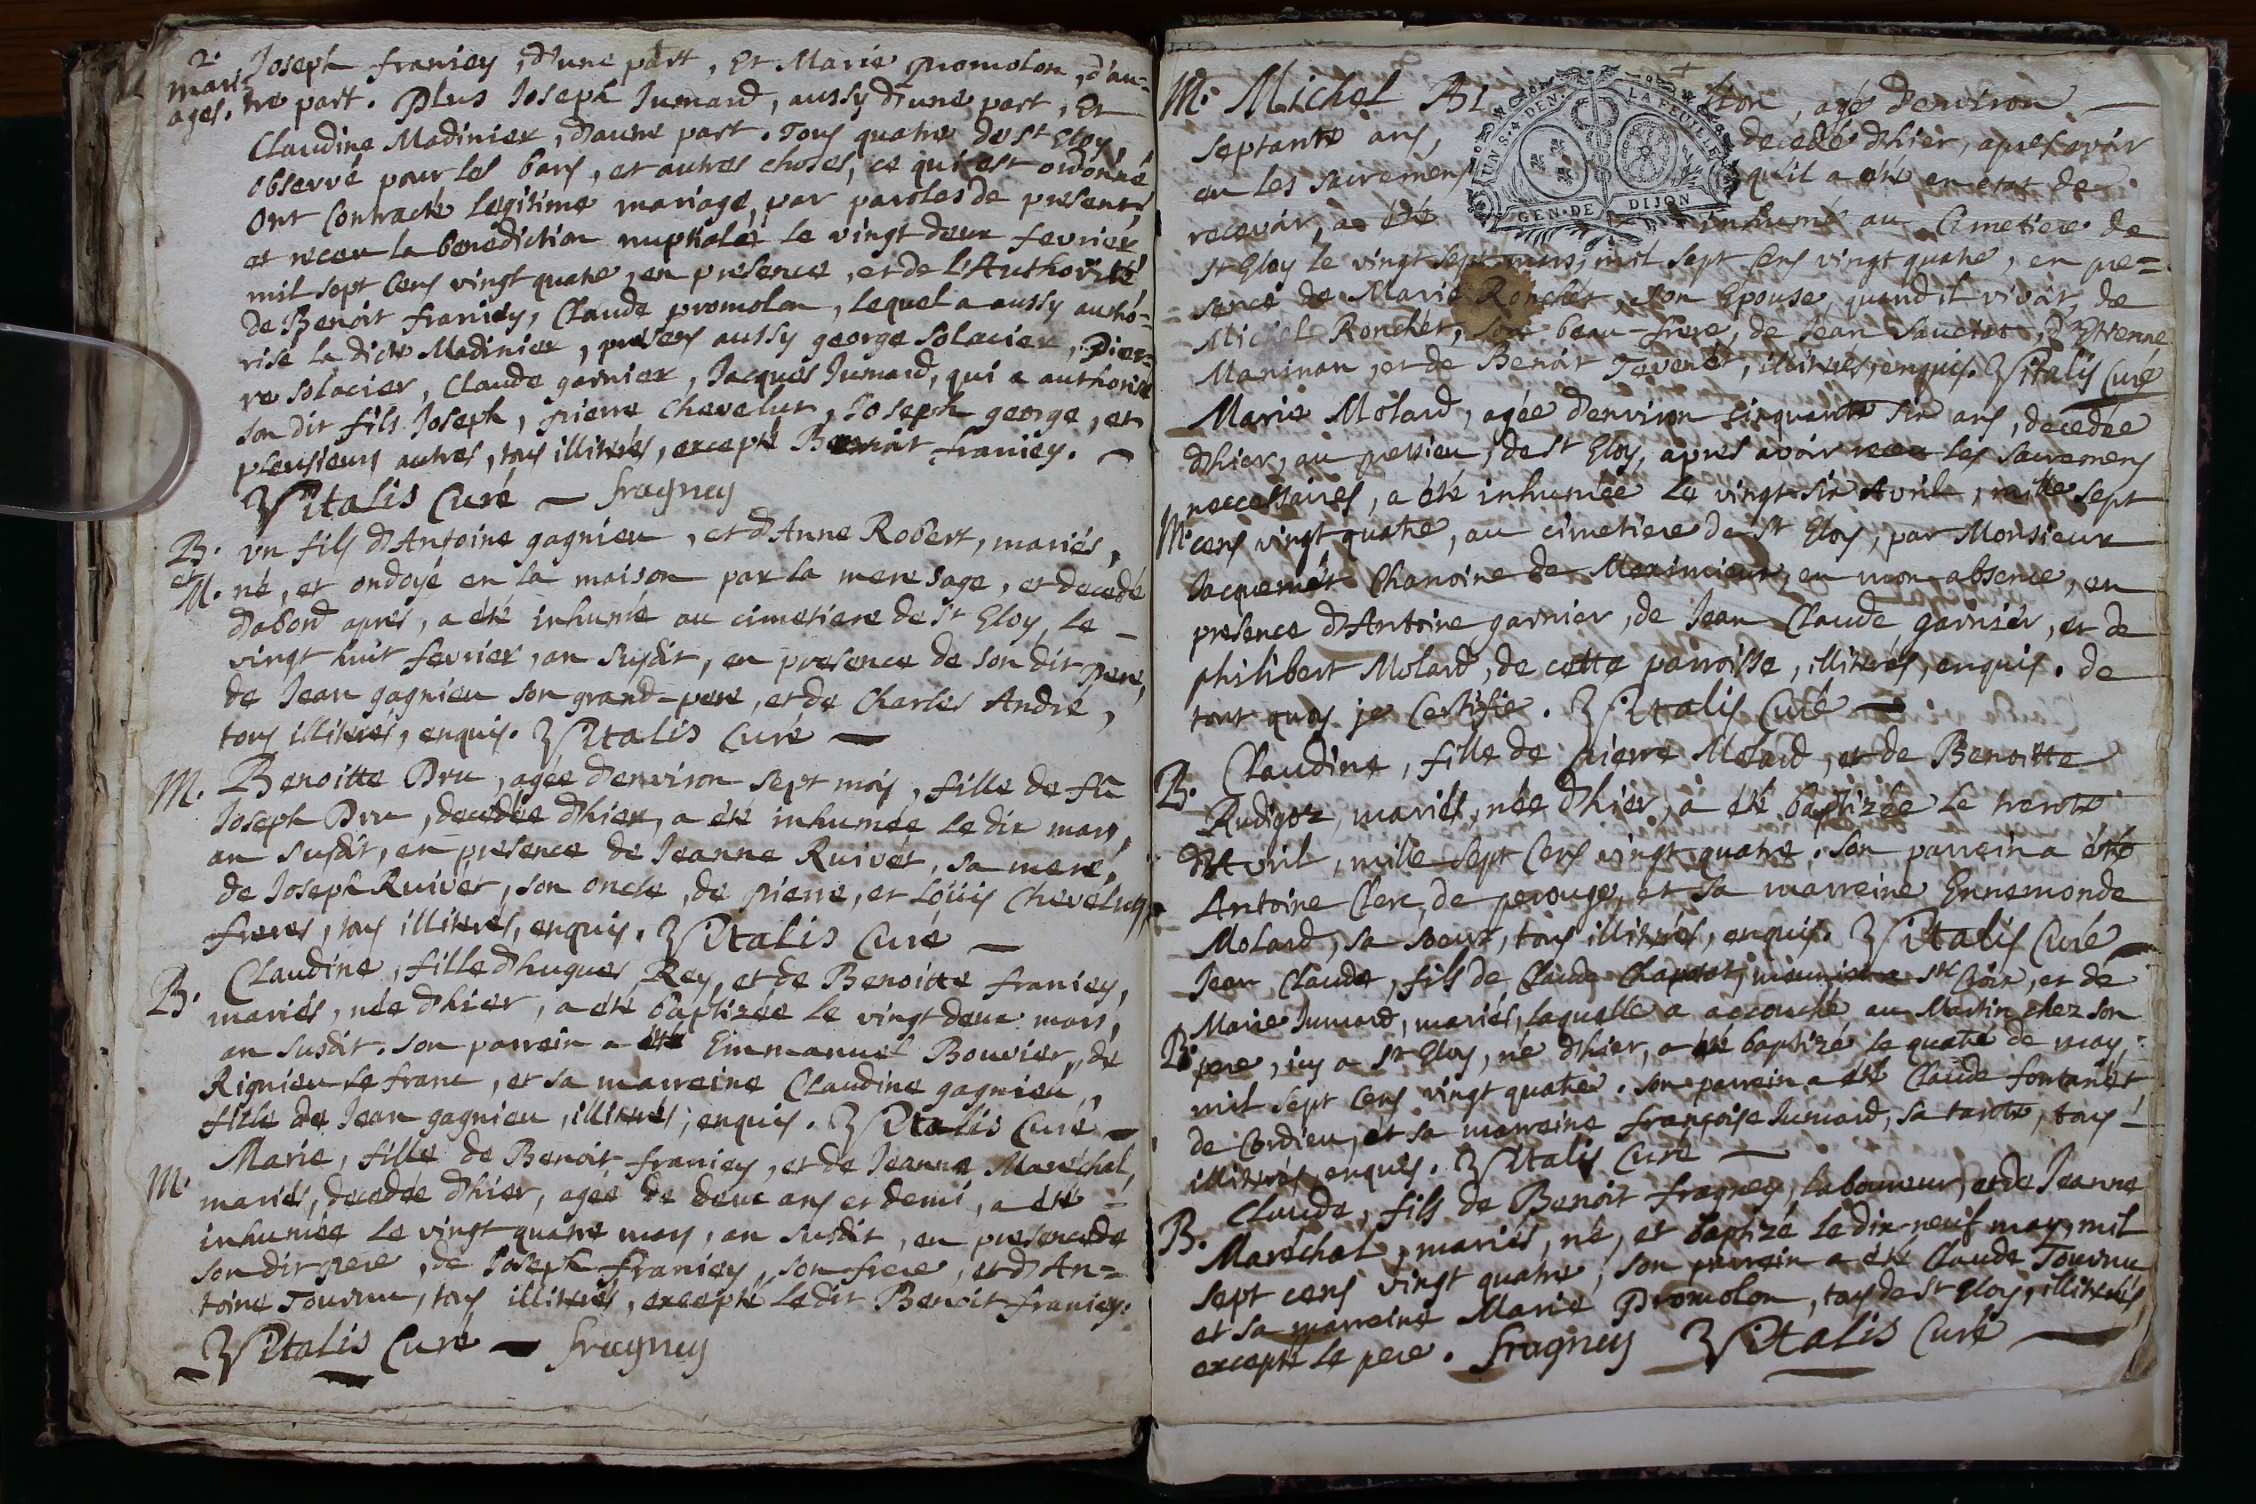 2.
mari-
ages.
Joseph franiey, d'une part, Et Marie promolon, d'au=
tre part. Plus Joseph Jumard, aussy d'une part, Et
Claudine Madinier, d'autre part. Tous quatre de St Eloy,
observé pour les bans, et autres choses, ce qui est ordonné,
ont Contracté legitime mariage, par paroles de present,
et receu la benediction nuptiale, le vingt deux fevrier
mil sept Cens vingt quatre, en presence, et de l'Authorité
de Benoit franiey, Claude promolon, lequel a aussy autho=
risé la dicte Madinier, presens aussy george Solacier, Pier=
re Solacier, Claude garnier, Jacques Jumard, qui a authorisé
son dit fils Joseph, pierre Chevelut, Joseph george, et
plusieurs autres, tous illiterés, excepté Benoit franiey. —
Vitalis Curé — fragney
B.
et
M.
vn fils d'Antoine gagnieu, et d'Anne Robert, mariés,
né, et ondoyé en la maison par la mere sage, et decedé
d'abord aprés, a été inhumé au cimetiere de St Eloy, le —
vingt huit fevrier, an susdit, en presence de son dit pere,
de Jean gagnieu son grand-pere, et de Charles André,
tous illiterés, enquis. Vitalis Curé —
M. Benoitte Bru, agée d'environ sept mois, fille de fû
Joseph Bru, decedée d'hier, a été inhumée le dix mars,
an susdit, en presence de Jeanne Ruivet, sa mere,
de Joseph Ruivet, son oncle, de pierre, et Loüis Chevelut,
freres, tous illiterés, enquis. Vitalis Curé —
B. Claudine, fille d'hugues Rey, et de Benoitte franiey,
mariés, née d'hier, a été baptizée le vingt deux mars,
an susdit. son parrein a été Emmanuel Bouvier, de
Rignieu le franc, et sa marreine Claudine gagnieu,
fille de Jean gagnieu, illiterés, enquis. Vitalis Curé —
M. Marie, fille de Benoit franiey, et de Jeanne Maréchal,
mariés, decedée d'hier, agée de deux ans et demi, a été =
inhumée le vingt quatre mars, an susdit, en presence de
son dit pere, de Joseph franiey, son frere, et d'An=
toine Tournu, tous illiterés, excepté ledit Benoit franiey.
Vitalis Curé — fragney
M. Michel tton, agé d'environ —
septante ans, decedé d'hier, apres avoir
eu les sacremens qu'il a été en etat de
recevoir, a été inhumé au Cimetiere de
St Eloy le vingt sept mars, mil sept Cens vingt quatre, en pre=
sence de Marie Roncher, son Epouse, quand il vivoit, de
Michel Roncher, son beau-frere, de Jean d'Etienne
Maninan, et de Benoit Tevenet, illiterés, enquis. Vitalis Curé
UN S. 4 DEN. LA FEUILLE
GEN. DE DIJON
Marie Molard, agée d'environ cinquante six ans, decedée
d'hier, au de St Eloy, apres avoir receu les sacremens
neccessaires, a été inhumée le vingt six Avril, mille sept
M. cens vingt quatre, au cimetiere de St Eloy, par Monsieur
Jacquemet Chanoine de Meximieux, en mon absence, en
presence d'Antoine garnier, de Jean Claude garnier, et de
philibert Molard, de cette parroisse, illiterés, enquis. de
tout quoy je Certifie. Vitalis Curé —
B. Claudine, fille de pierre Molard, et de Benoitte
Rudigoz, mariés, née d'hier, a été baptizée le trente
d'Avril, mille sept Cens vingt quatre. son parrein a été
Antoine Clerc, de perouge, et sa marreine Ennemonde
Molard, sa soeur, tous illiterés, enquis. Vitalis Curé —
Jean Claude, fils de Claude Chapotat, meunier a Ste Croix, et de
Marie Jumard, mariés, laquelle a accouché au Martin chez son
B. pere, icy a St Eloy, né d'hier, a été baptizé le quatre de may
mil sept Cens vingt quatre. son parrein a été Claude fontanet
de Cordieu, et sa marreine françoise Jumard, sa tante, tous —
illiterés, enquis. Vitalis Curé —
B. Claude, fils de Benoit fragney, laboureur, et de Jeanne
Maréchal, mariés, né, et baptizé le dix neuf may, mil
sept cens vingt quatre, son parrein a été Claude Tournu
et sa marreine Marie Promolon, tous de St Eloy, illiterés,
excepté le pere. fragney Vitalis Curé —